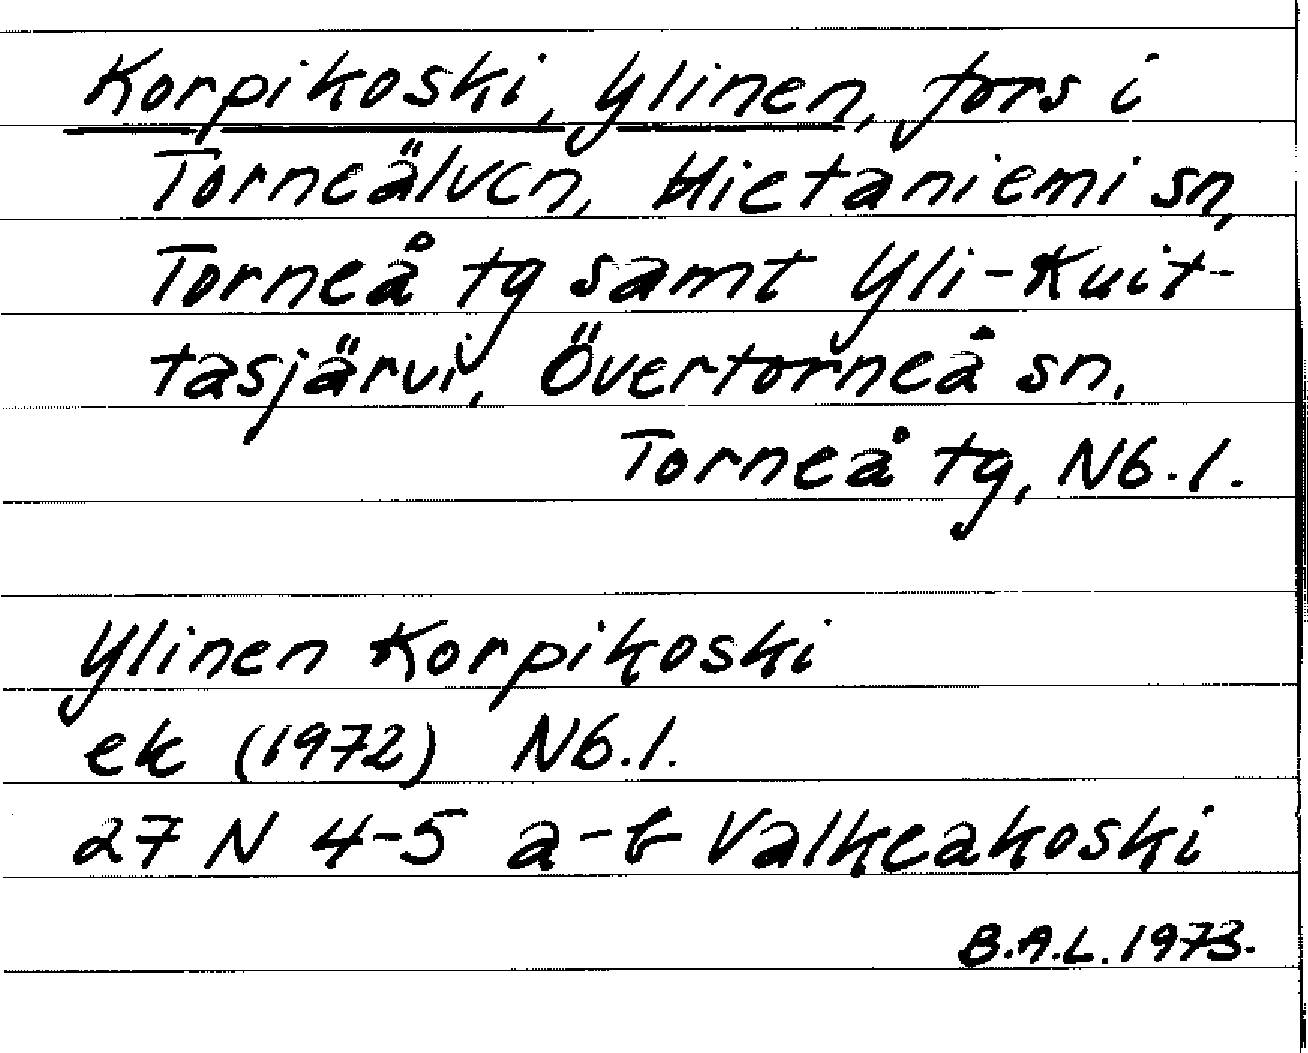 Korpikoski, Ylinen, fors i
Torneälven, Hietaniemi sn,
Torneå tg samt Yli-Kuit-
tasjärvi, Övertorneå sn.
Torneå tg, Nb.l.
Ylinen Korpikoski
ek (1972) Nb.l.
27 N 4-5 a-b Valkeakoski
B.A.L. 1973.